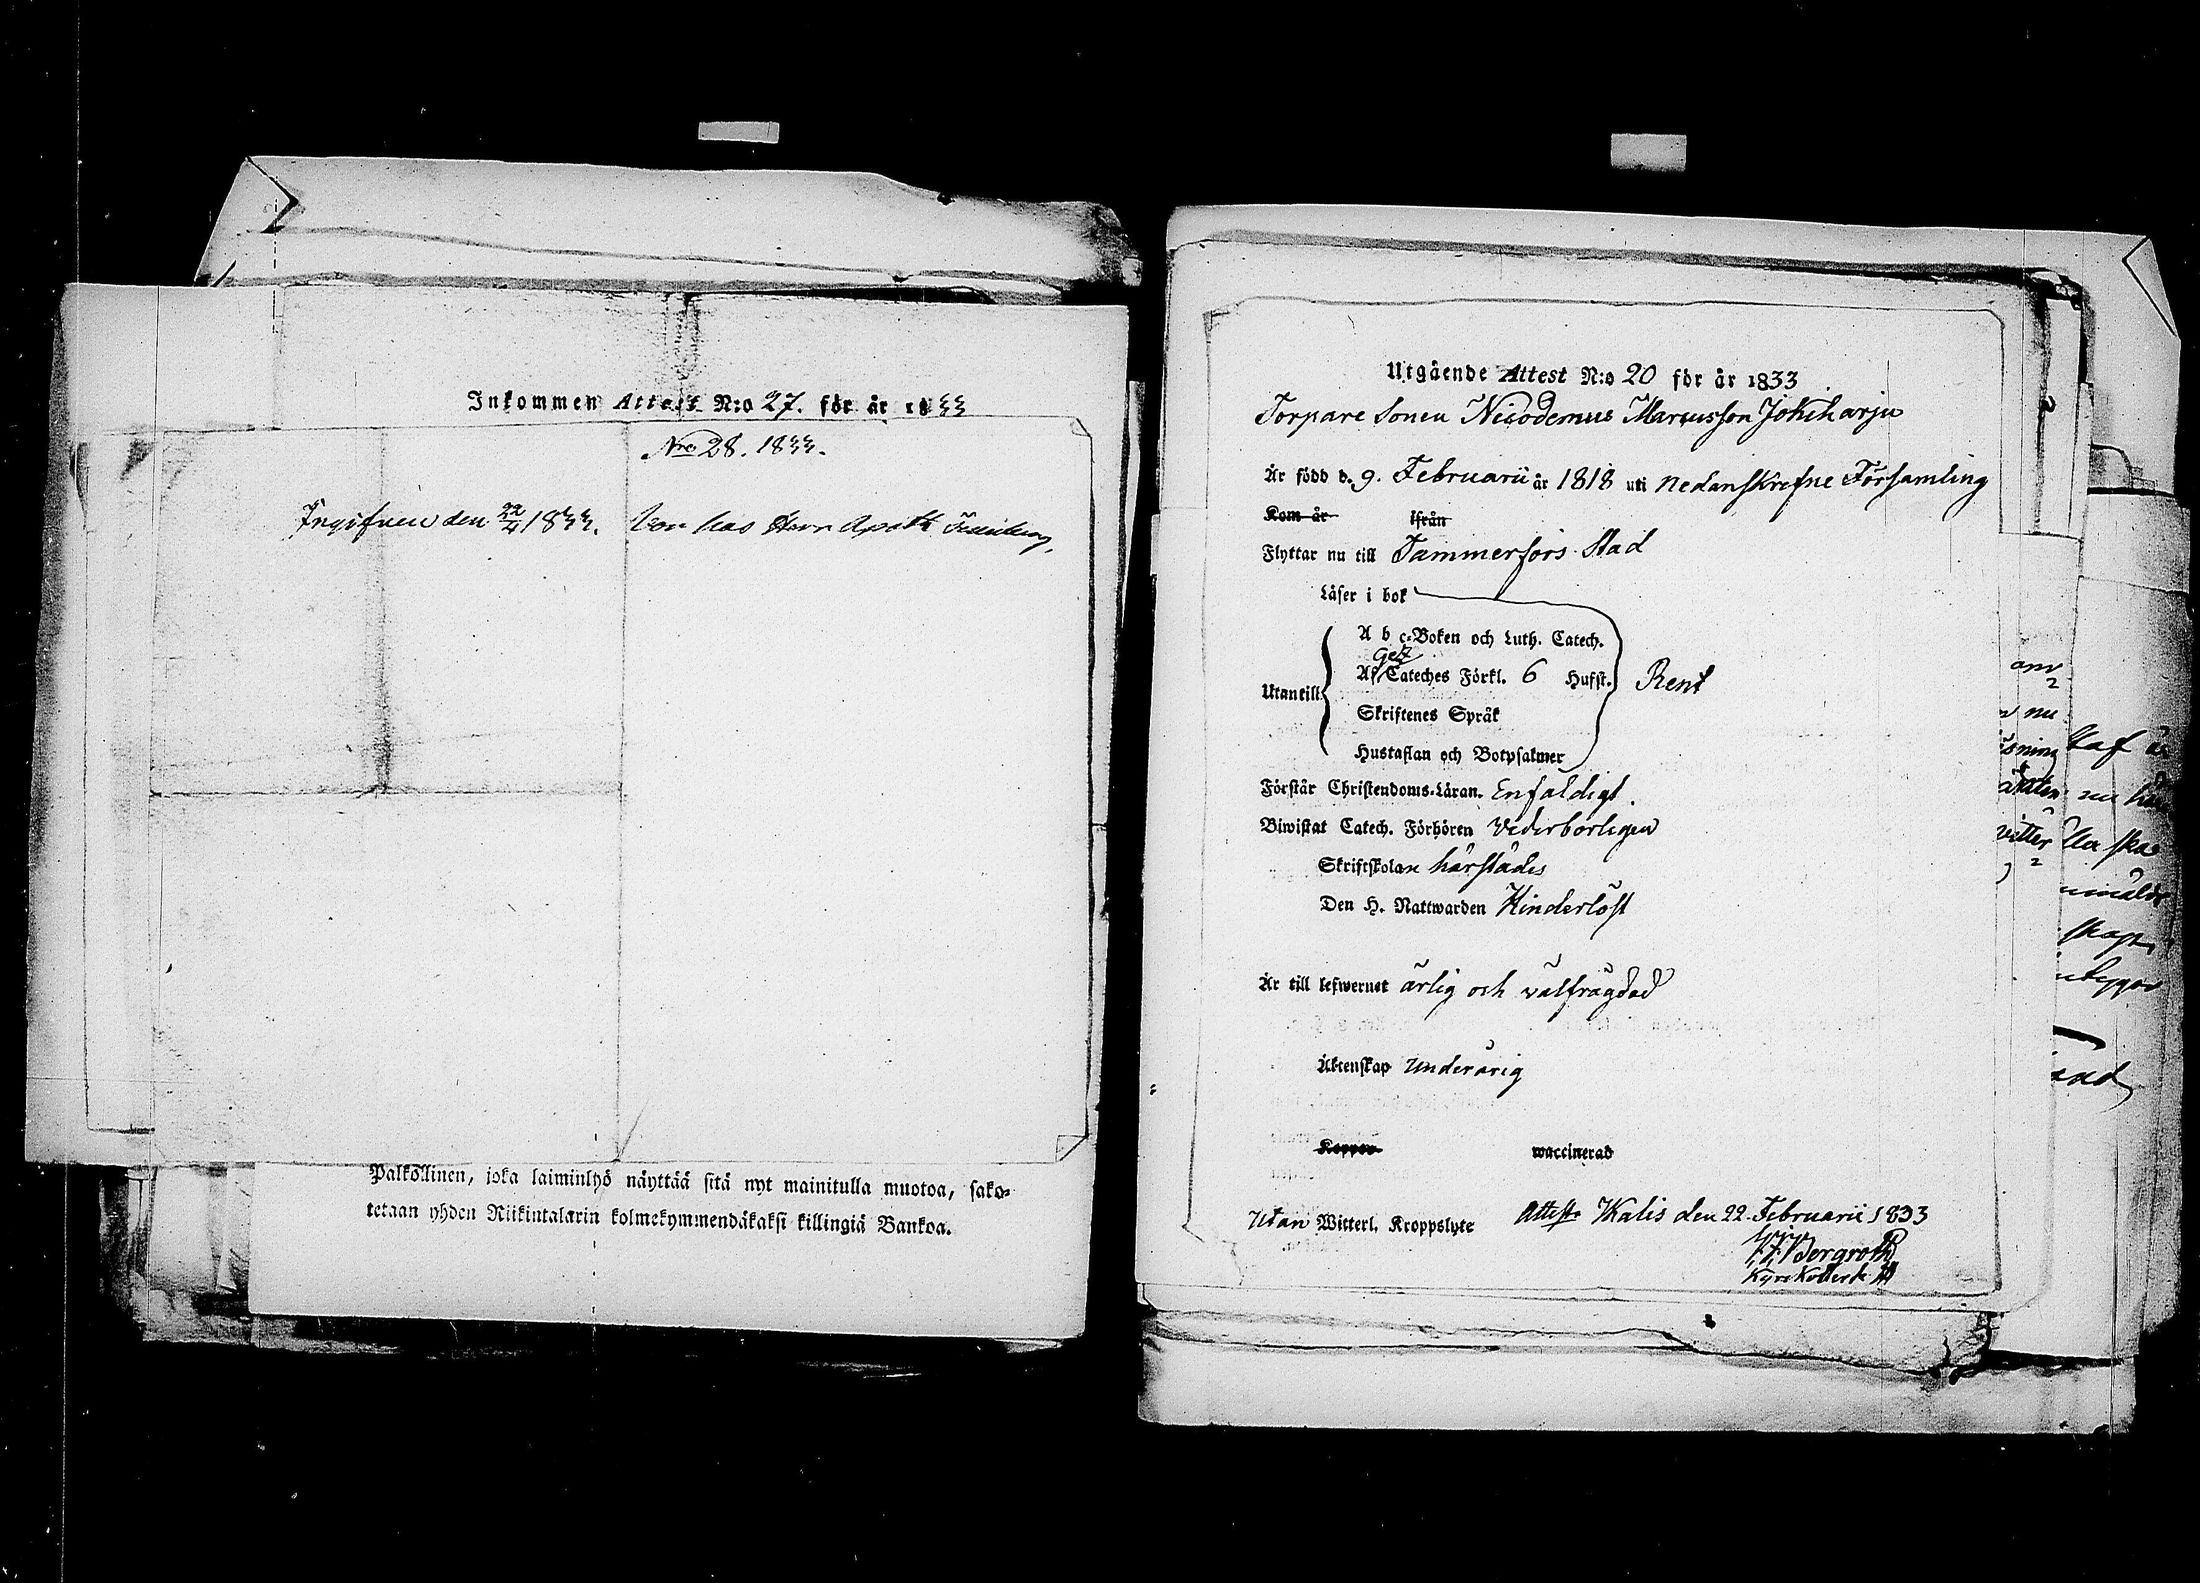 Inkommen Attest N:o 27. för år 1833
Nro 28. 1833.
Ingifven den 22/4 1833. bor hos Herr Apoth.
Palkollinen, joka laiminlyö näyttää sitä nyt mainitulla muotoa, sako-
tetaan yhden Riikintalarin kolmekymmendäkaksi killingiä Bankoa.
Utgående Attest N:o 20 för år 1833
Torpare Sonen Nicodemus Marcusson Jokiharju
Är född d. 9. Februarii år 1818 uti nedanskrefne Församling
Kom år ifrån
Flyttar nu till Tammerfors Stad
Läser i bok
A b c-Boken och Luth. Catech.
Af Cateches Förkl. 6 Hufst. Rent
Utantill
Skriftenes Språk
Hustaflan och Botpsalmer
Förstår Christendoms-Läran. Enfaldigt.
Biwistat Catech. Förhören Vederborligen
Skriftskolan härstädes
Den H. Nattwarden Hinderlöst
Är till lefwernet ärlig och välfrägdad
Äktenskap underårig
Koppor waccinerad
Utan Witterl. Kroppslyte Attestr. Kalis den 22 Februarii 1833
Bergroth